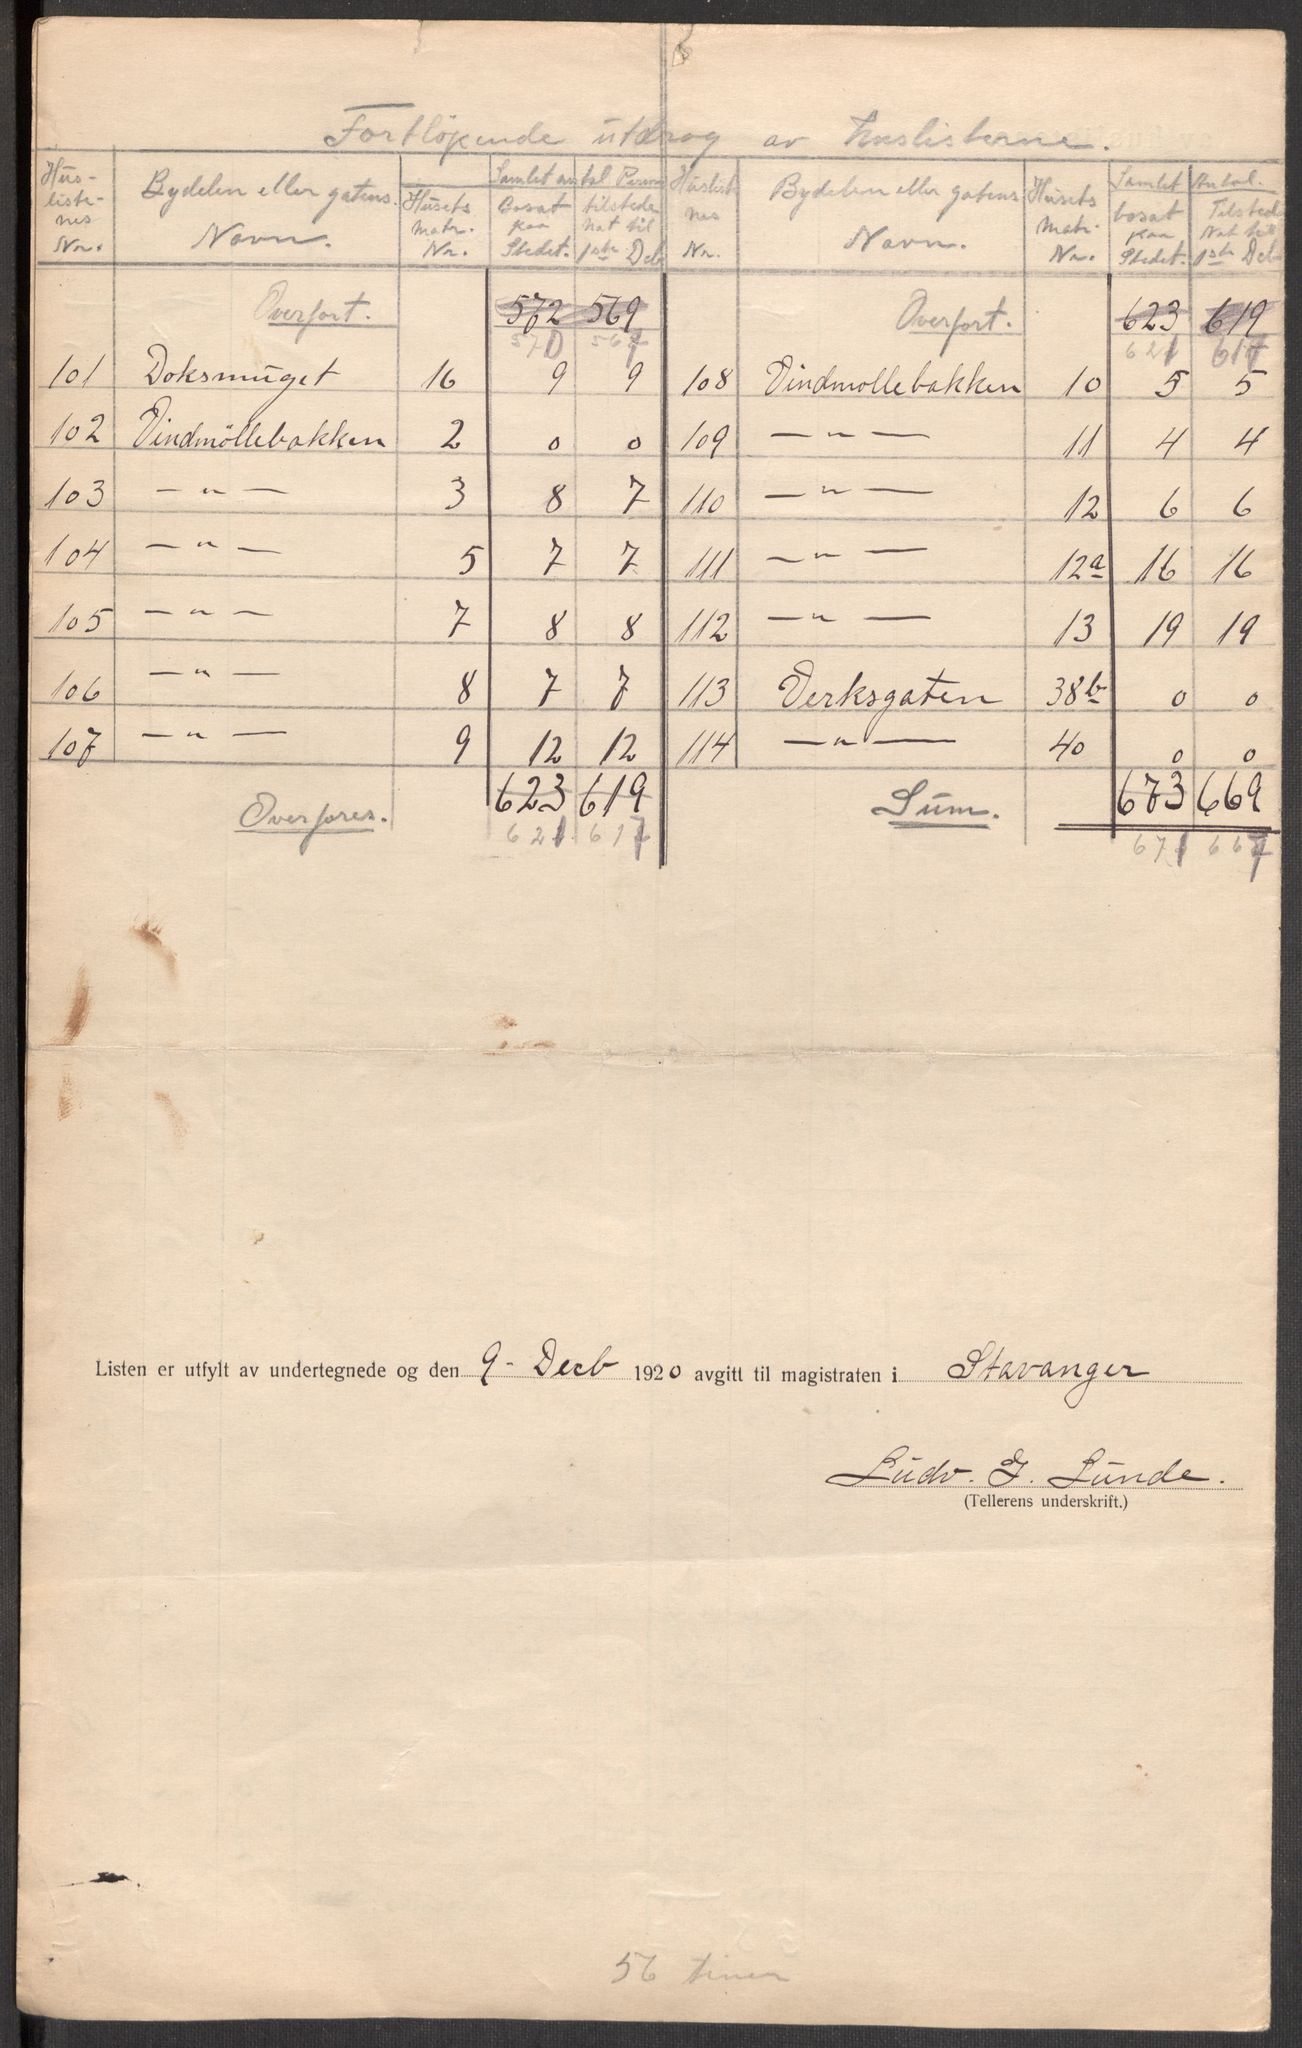 Fortløpende utdrag av huslisterne.
Hus-listenes Nr. Bydelen eller gatens Navn. Husets matr. Nr. Samlet antal Person bosat paa Stedet. tilstede Nat til 1ste Deb Huslistnes Nr. Bydelen eller gatens Navn. Husets matr. Nr. Samlet Antal. bosat paa Stedet. Tilstede Nat til 1ste Deb
Overført. 572 569 Overført. 623 619
570 567 621 617
101 Doksmuget 16 9 9 108 Vindmøllebakken 10 5 5
102 Vindmøllebakken 2 0 0 109 — " — 11 4 4
103 — " — 3 8 7 110 — " — 12 6 6
104 — " — 5 7 7 111 — " — 12a 16 16
105 — " — 7 8 8 112 — " — 13 19 19
106 — " — 8 7 7 113 Verksgaten 38b 0 0
107 — " — 9 12 12 114 — " — 40 0 0
Overføres. 623 619 Sum. 673 669
621 617 671 667
Listen er utfylt av undertegnede og den 9- Decb 1920 avgitt til magistraten i Stavanger
Ludv. J. Lunde.
(Tellerens underskrift.)
56 timer